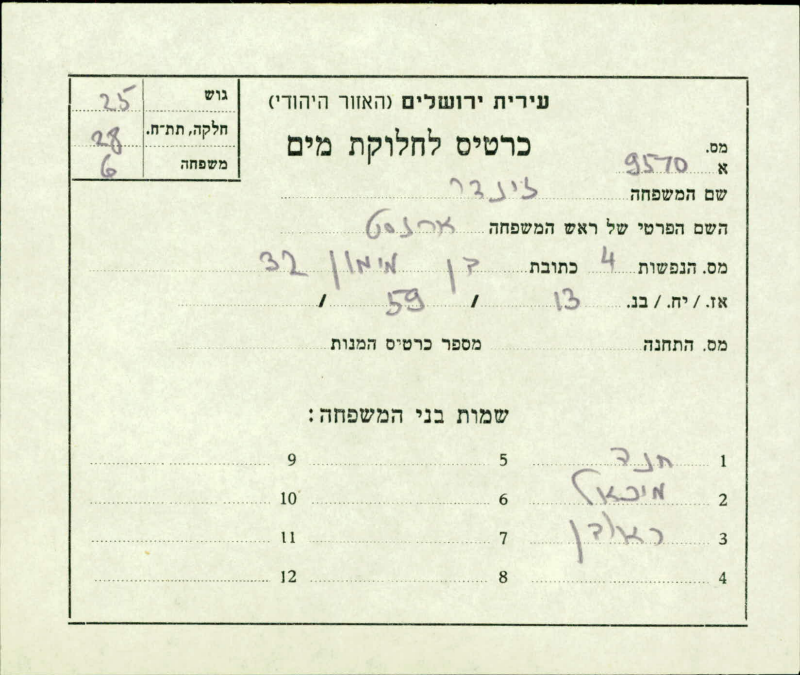 עירית ירושלים (האזור היהודי)
כרטיס לחלוקת מים
גוש 25
חלקה, תת־ח. 28
משפחה 6
מס.
א 9570
שם המשפחה זינדר
השם הפרטי של ראש המשפחה ארנסט
מס. הנפשות 4 כתובת בן מימון 32
אז. / יח. / בנ. 13 / 59 /
מס. התחנה מספר כרטיס המנות
שמות בני המשפחה:
1 חנה 5 9
2 מיכאל 6 10
3 ראובן 7 11
4 8 12